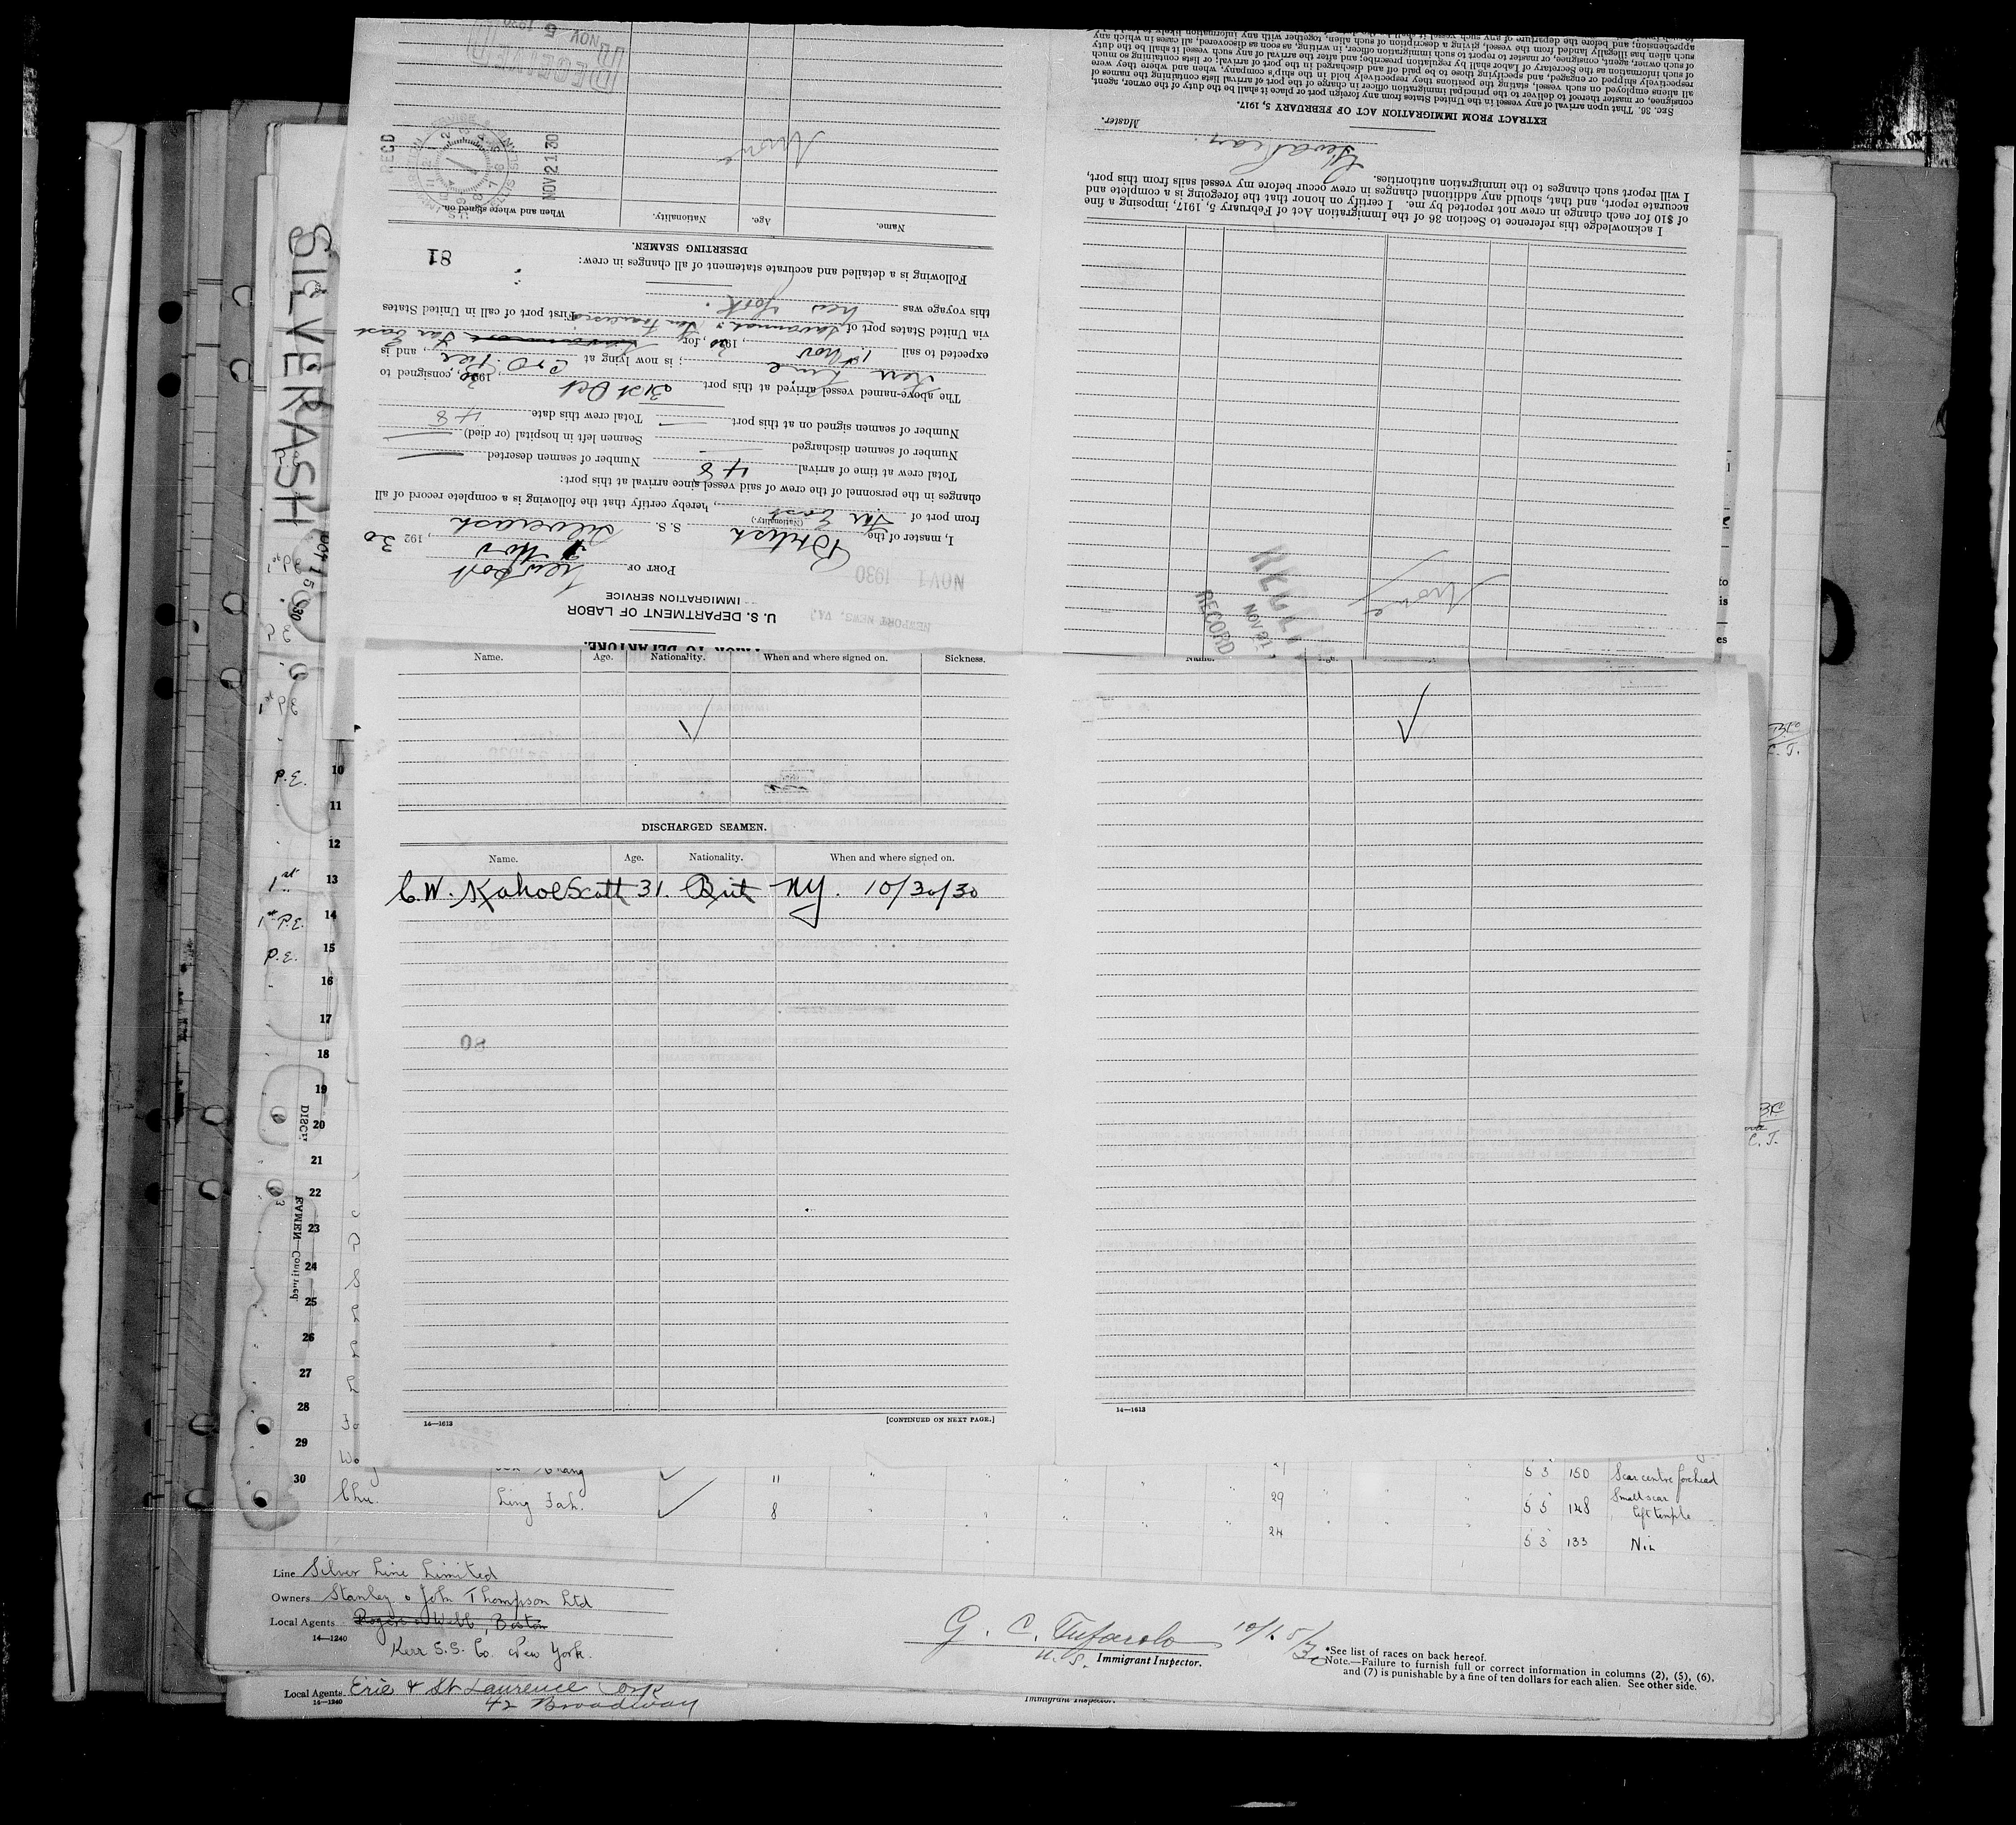 SILVERASH
OCT 15 '30
U. S. DEPARTMENT OF LABOR
IMMIGRATION SERVICE
PORT OF Newport Nov 1, 192 30
I, master of the British S. S. Silverash
(Nationality.)
from port of Far East, hereby certify that the following is a complete record of all
changes in the personnel of the crew of said vessel since arrival at this port:
Total crew at time of arrival 48 Number of seamen deserted
Number of seamen discharged Seamen left in hospital (or died)
Number of seamen signed on at this port Total crew this date 48
The above-named vessel arrived at this port 31st Oct 1930, consigned to
Kerr Line; is now lying at C & O Pier, and is
expected to sail 1st Nov, 1930, for Far East
via United States port of Savannah & San Francisco First port of call in United States
this voyage was New York.
Following is a detailed and accurate statement of all changes in crew:
81
DESERTING SEAMEN.
Name. Age. Nationality. When and where signed on.
None
NOV 21 30
REC'D
RECEIVED
NOV 5 1930
NOV 1 1930
NEWPORT NEWS, VA.
None
RECORD
I acknowledge this reference to Section 36 of the Immigration Act of February 5, 1917, imposing a fine
of $10 for each change in crew not reported by me. I certify on honor that the foregoing is a complete and
accurate report, and that, should any additional changes in crew occur before my vessel sails from this port,
I will report such changes to the immigration authorities.
Master.
EXTRACT FROM IMMIGRATION ACT OF FEBRUARY 5, 1917.
Sec. 36. That upon arrival of any vessel in the United States from any foreign port or place it shall be the duty of the owner, agent,
consignee, or master thereof to deliver to the principal immigration officer in charge of the port of arrival lists containing the names of
all aliens employed on such vessel, stating the positions they respectively hold in the ship's company, when and where they were
respectively shipped or engaged, and specifying those to be paid off and discharged in the port of arrival; or lists containing so much
of such information as the Secretary of Labor shall by regulation prescribe; and after the arrival of any such vessel it shall be the duty
of such owner, agent, consignee, or master to report to such immigration officer, in writing, as soon as discovered, all cases in which any
such alien has illegally landed from the vessel, giving a description of such alien, together with any information likely to lead to his
apprehension; and before the departure of any such vessel it shall be the
Name. Age. Nationality. When and where signed on. Sickness.
DISCHARGED SEAMEN.
Name. Age. Nationality. When and where signed on.
C.W. Kahoe Scott 31. Brit NY. 10/30/30
80
14—1613
[CONTINUED ON NEXT PAGE.]
14—1613
P.E.
1st
1st P.E.
P.E.
10
11
12
13
14
15
16
17
18
19
20
21
22
23
24
25
26
27
28
29
30
EAMEN—Continued.
11 21 5 3 150 Scar centre forehead
Chu. Ling Fah. 8 29 5 5 148 Small scar left temple
24 5 3 133 Nil
Line Silver Line Limited
Owners Stanley & John Thompson Ltd
Local Agents Rogers & Webb, Boston
14—1240
Kerr S.S. Co. New York.
G. C. Tufarolo 10/15/30
U.S. Immigrant Inspector.
*See list of races on back hereof.
Note.—Failure to furnish full or correct information in columns (2), (5), (6),
and (7) is punishable by a fine of ten dollars for each alien. See other side.
Local Agents Erie & St Laurence Corp
14—1240
42 Broadway
Immigrant Inspector.